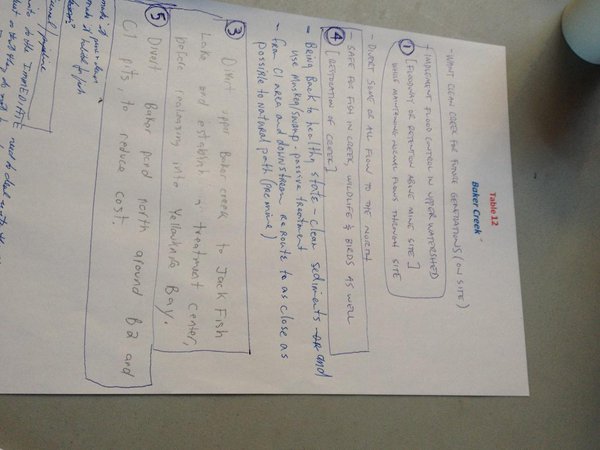 Table 12
Baker Creek -
- WANT CLEAN CREEK FOR FUTURE GENERATIONS (ON SITE)
- IMPLEMENT FLOOD CONTROL IN UPPER WATERSHED
① [FLOODWAY OR RETENTION ABOVE MINE SITE]
WHILE MAINTAINING NORMAL FLOWS THROUGH SITE
- DIVERT SOME OR ALL FLOW TO THE NORTH
- SAFE FOR FISH IN CREEK, WILDLIFE & BIRDS AS WELL
④ [RESTORATION OF CREEK]
- Bring Back to healthy state - clean sediments and
use Muskeg/swamp - passive treatment
- from C1 area and downstream reroute to as close as
possible to Natural path (premine)
③ Divert upper Baker creek to Jack Fish
Lake and establish a treatment center,
before releasing into Yellowknife Bay.
⑤ Divert Baker pond north around B2 and
C1 pits, to reduce cost.
to the IMMEDIATE
need to